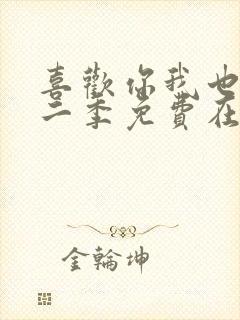 喜歡你我也
二季免費在
金輪坤